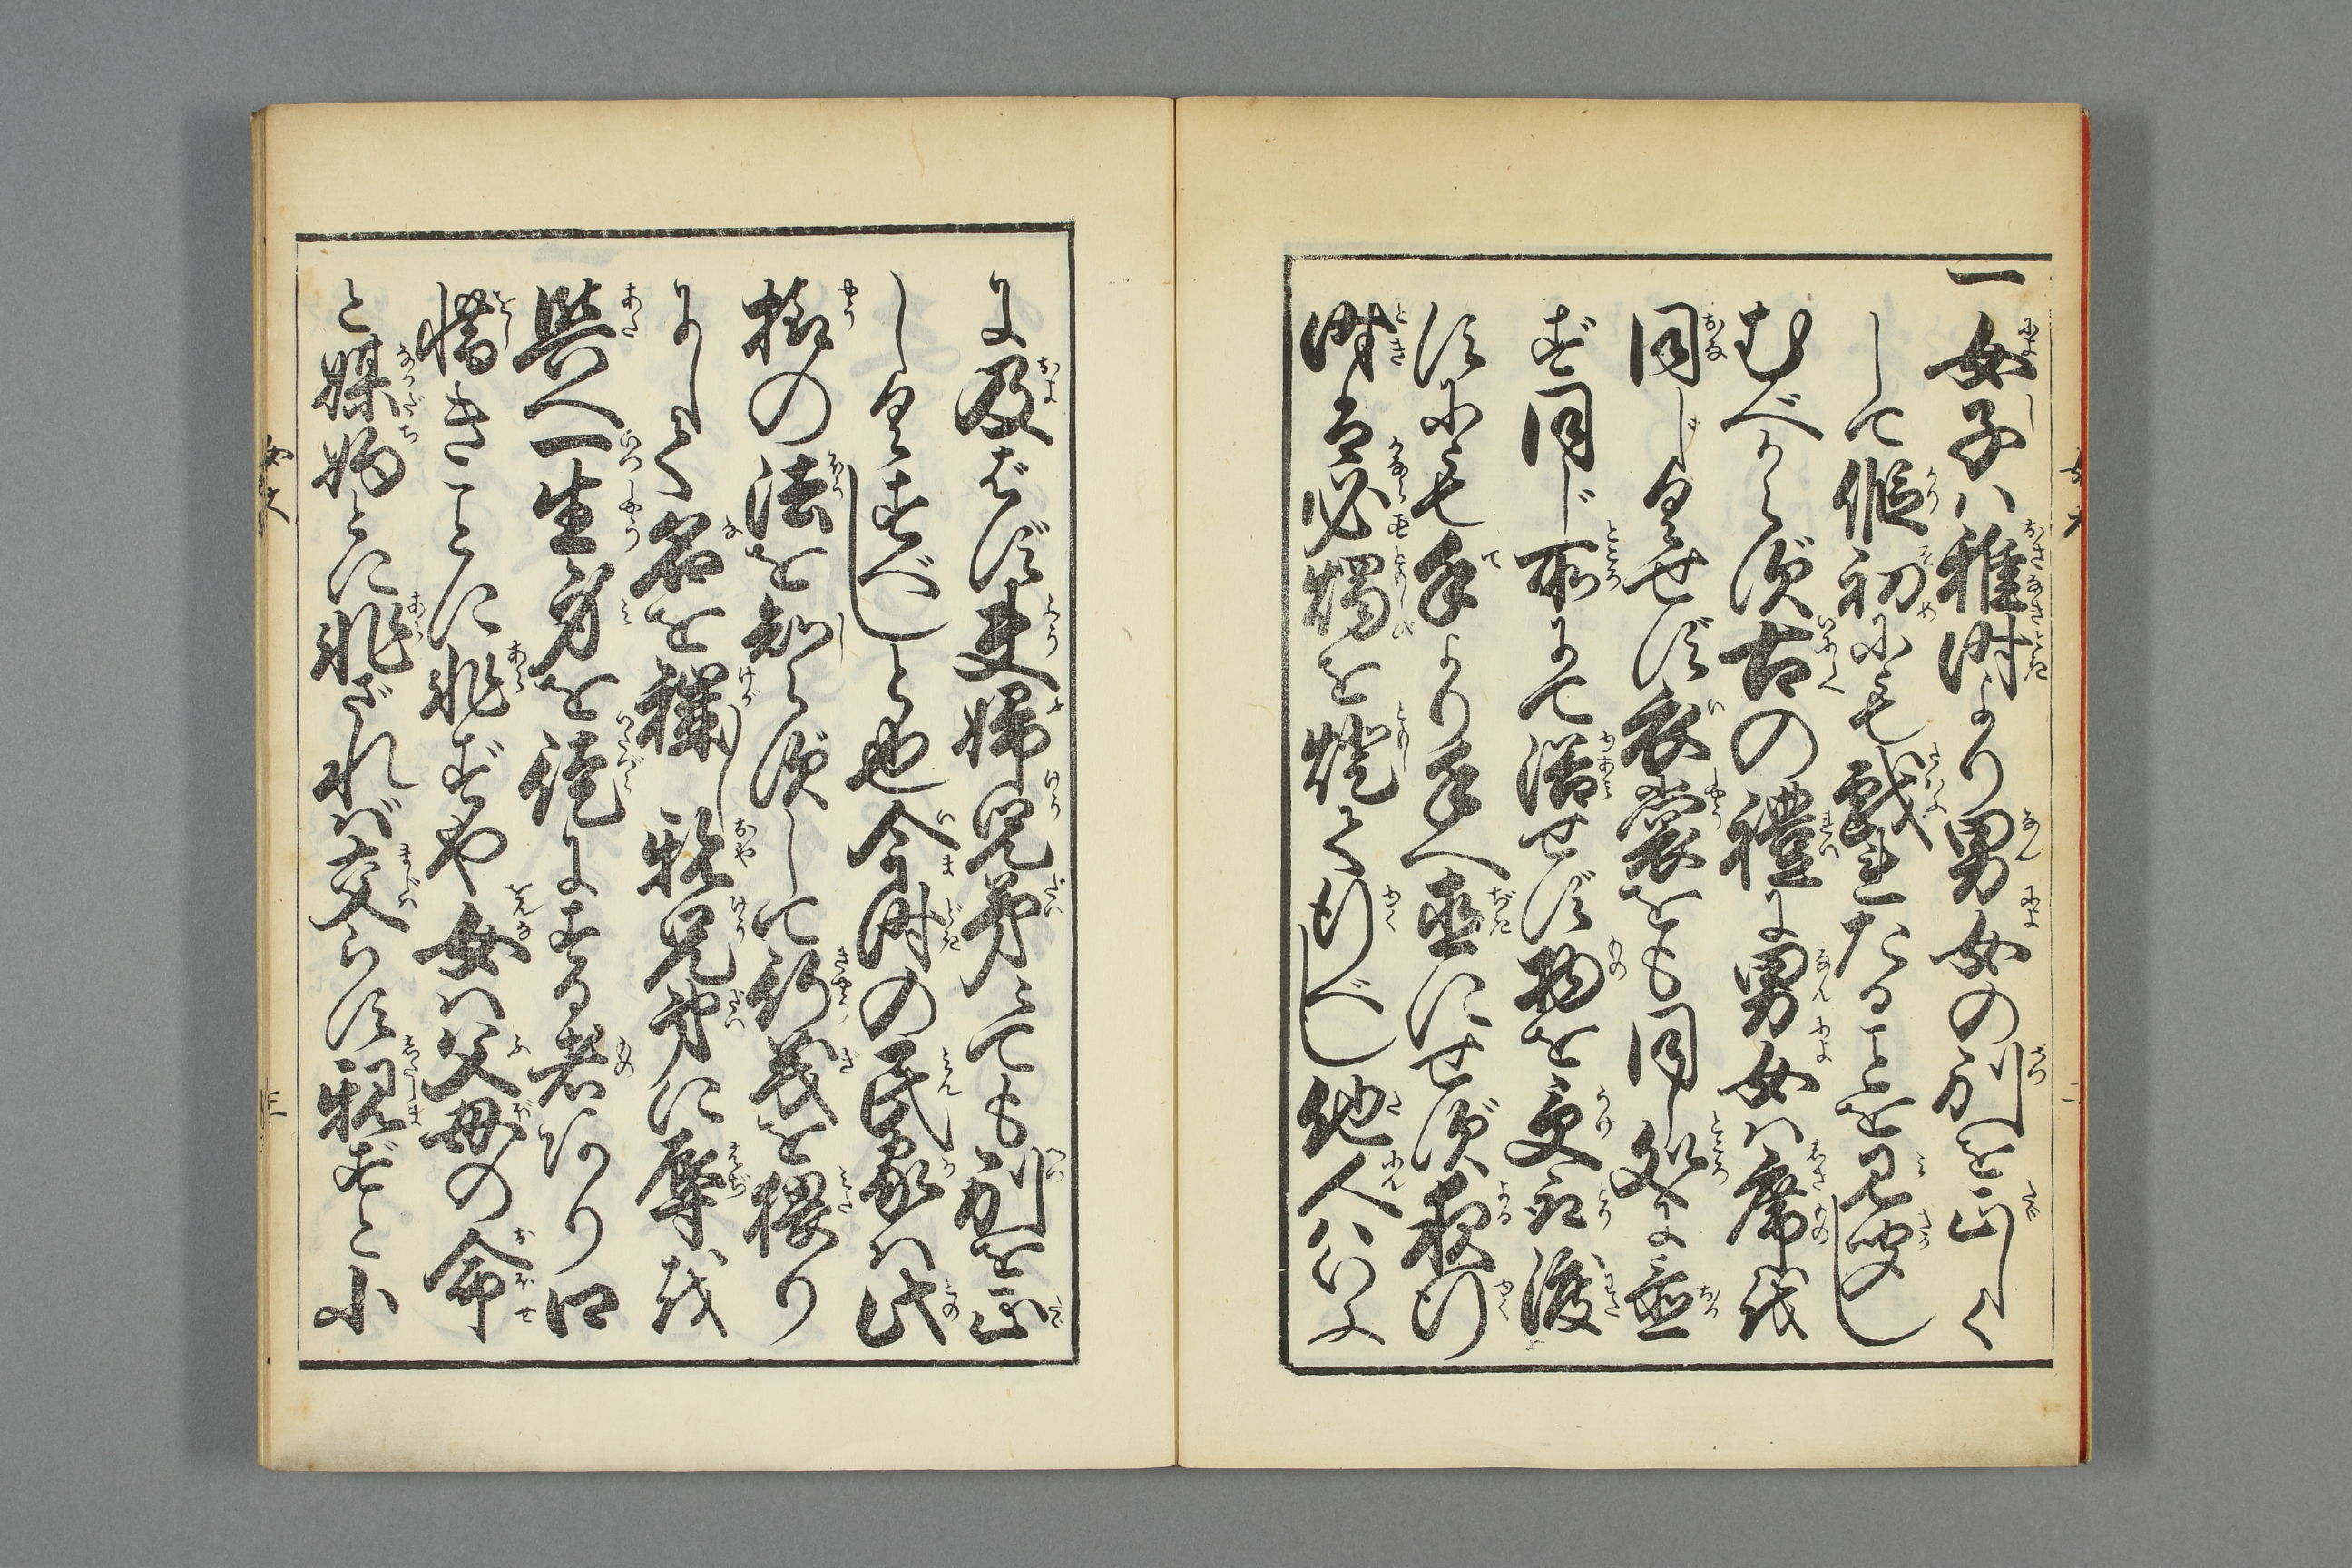 一女子ハ稚時より男女の別を正しく
して仮初にも戯れたることを見聞しむべからず
むべからず古の禮に男女ハ席を
同じくせず衣裳をも同じ処に置
ず同じ所にて浴せず物を受取渡
すにも手より手へ直にせず夜行
時は必燭を燈して行べし他人ハいふ
に及ばず夫婦兄弟にても別を正
しくすべしと也今時の民家ハ此
様の法を知らずして行義を猥り
にして名を穢し親兄弟に辱を
與へ一生身を徒にする者あり口
惜きことに非ずや女ハ父母の命
と媒妁とに非ざれば交らず親ずと小
女大 二
女大 三